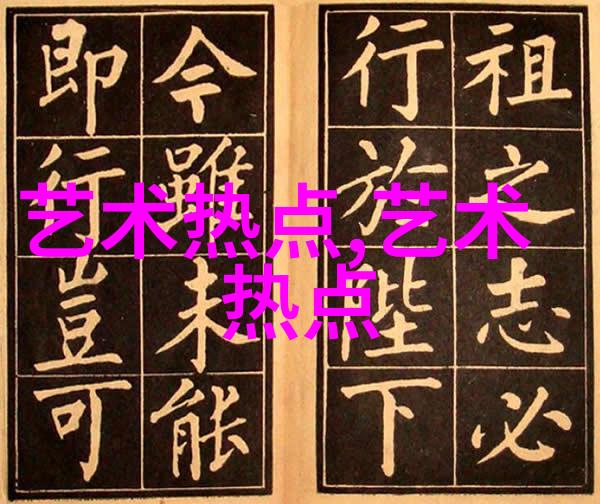 祖之志必
行於陛下
今雖未能
即行豈可
艺术热点,艺术
热点